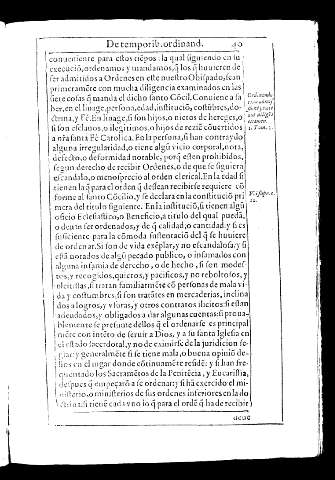 De temporib. ordinand.
conueniente para estos tiẽpos: la qual siguiendo en su
execuciõ, ordenamos y mandamos, q̃ los q̃ huuieren de
ser admitidos a Ordenes en este nuestro Obispado, sean
primeramẽte con mucha diligencia examinados en las
siete cosas q̃ manda el dicho santo Cõcil. Conuiene a sa
ber, en el linage, persona, edad, instituciõ, costũbres, do-
ctrina, y Fè. En linage, si son hijos, o nietos de hereges, o
si son esclauos, o ilegitimos, o hijos de reziẽ cõuertidos
a nr̃a santa Fè Catolica. En la persona, si han contraydo
alguna irregularidad, o tiene algũ vicio corporal, nota,
defecto, o deformidad notable, porq̃ estẽn prohibidos,
segun derecho de recibir Ordenes, o de que se siguiera
escandalo, o menosprecio al orden clerical. En la edad si
tienen la q̃ para el orden q̃ dessean recibir se requiere cõ
forme al santo Cõcilio, y se declara en la constituciõ pri
mera del titulo siguiente. En la instituciõ, si tienen algũ
oficio Eclesiastico, o Beneficio, a titulo del qual puedã,
o deuan ser ordenados, y de q̃ calidad, o cantidad, y si es
suficiente para la cõmoda sustentaciõ del q̃ se huuiere
de ordenar. Si son de vida exẽplar, y no escandalosa, y si
estã notados de algũ pecado publico, o infamados con
alguna infamia de derecho, o de hecho, si son modes
tos, y recogidos, quietos, y pacificos, y no reboltosos, y
pleitistas, si tratan familiarmẽte cõ personas de mala vi
da y costumbres, si son tratãtes en mercaderias, inclina
dos a logros, y vsuras, y otros contratos ilicitos: si estan
adeudados, y obligados a dar algunas cuentas: si proua-
blemente se presume dellos q̃ el ordenarse es principal
mẽte con intẽto de seruir a Dios, y a su santa Iglesia en
el estado sacerdotal, y no de eximirse de la jurisdicion se
glar: y generalmẽte si se tiene mala, o buena opiniõ de-
llos en el lugar donde cõtinuamẽte residẽ: y si han fre-
quentado los Sacramẽtos de la Penitẽcia, y Eucaristia,
despues q̃ empeçarõ a se ordenar: y si hã exercido el mi-
nisterio, o ministerios de sus ordenes inferiores en la do
ctrina, si tienẽ cada vno lo q̃ para el ordẽ q̃ ha de recibir